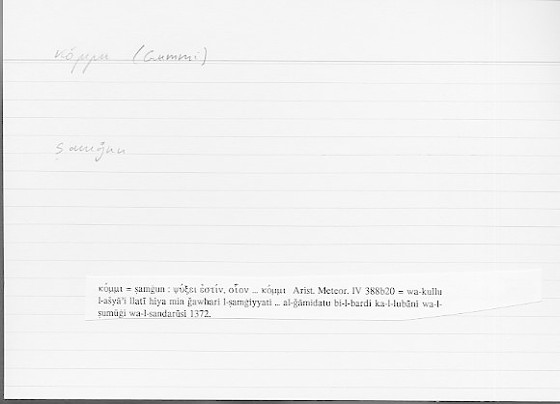 κόμμι (Gummi)
ṣamġun
κόμμι = ṣamġun : ψύξει ἐστίν, οἷον ... κόμμι Arist. Meteor. IV 388b20 = wa-kullu
l-ašyāʾi llatī hiya min ǧawhari l-ṣamġiyyati .. al-ǧāmidatu bi-l-bardi ka-l-lubāni wa-l-
ṣumūġi wa-l-sandarūsi 1372.